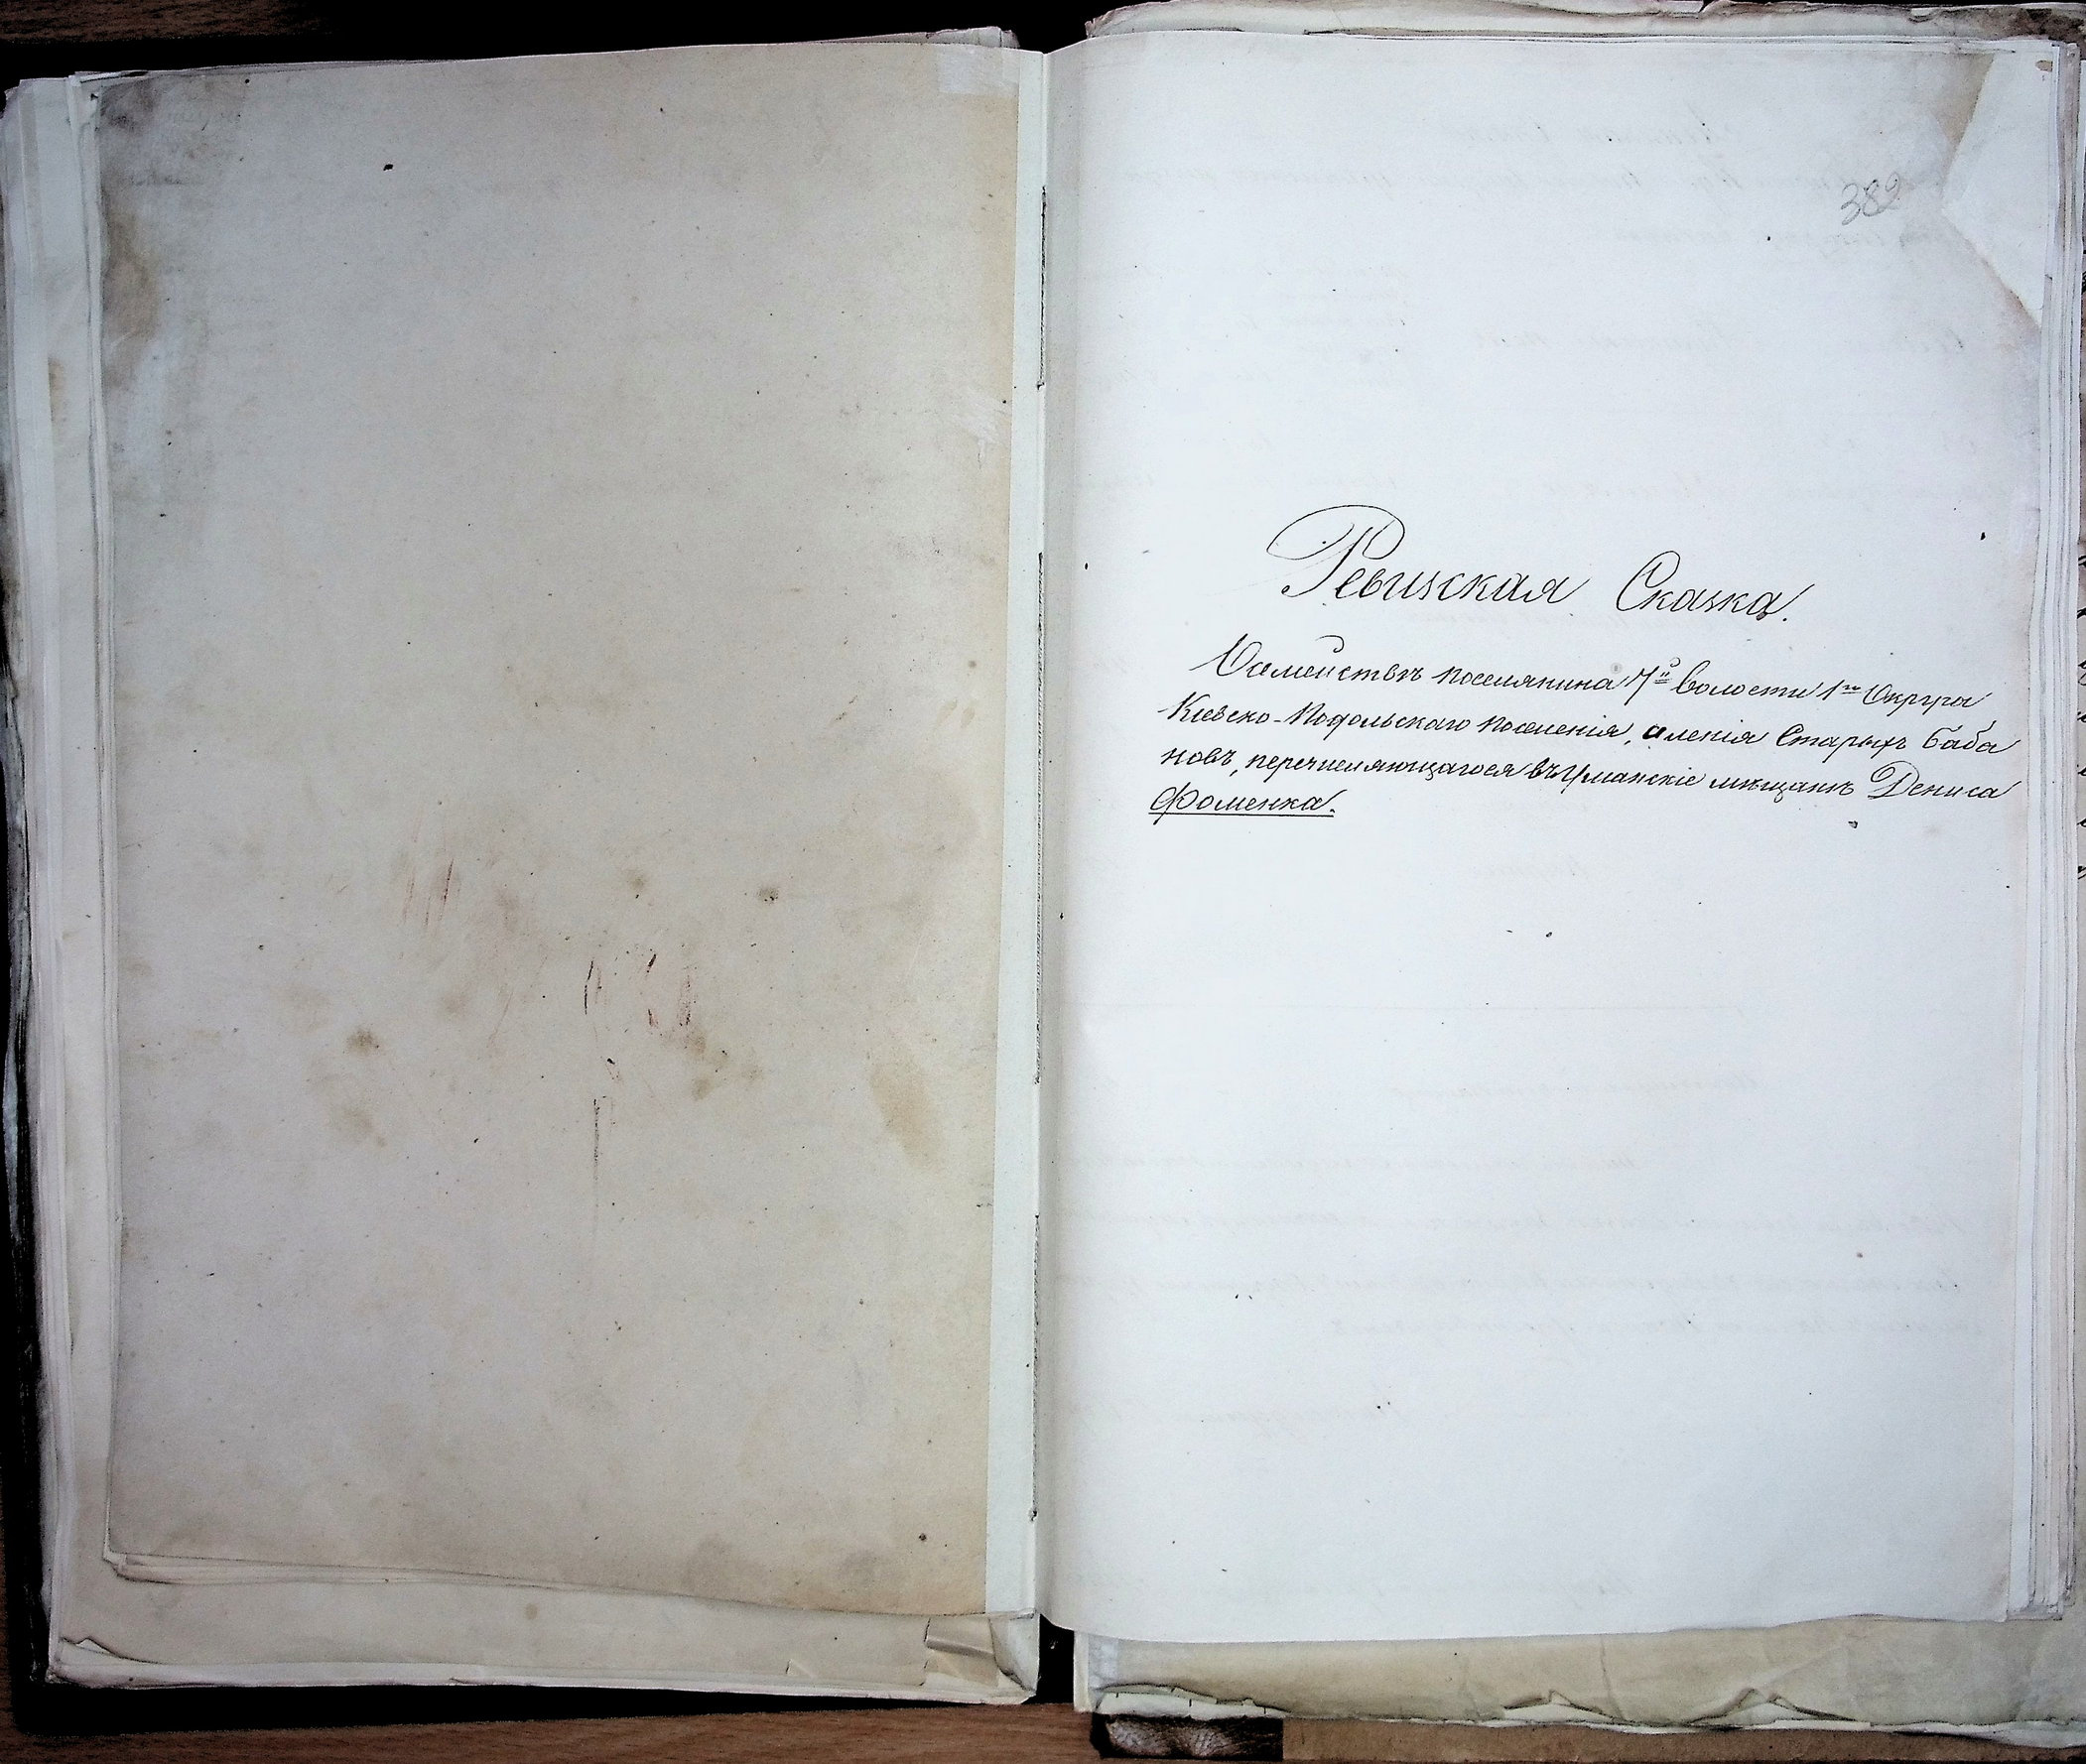 382
Ревизская Сказка.
Семействъ поселянина 7й волости 1го Округа
Кіевско-Подольскаго поселенія, селенія Старыхъ Баба
новъ, перечисляющагося въ Уманскіе мѣщане Дениса
Фоменка.